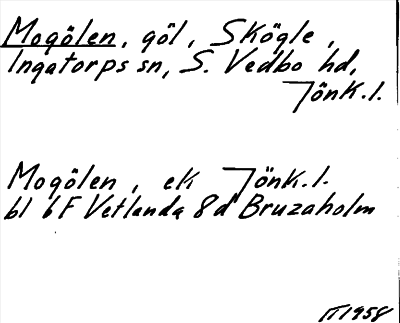 Mogölen, göl, Skögle,
Ingatorps sn, S. Vedbo hd,
Jönk.l.
Mogölen, ek Jönk.l.
bl 6F Vetlanda 8d Bruzaholm
1958